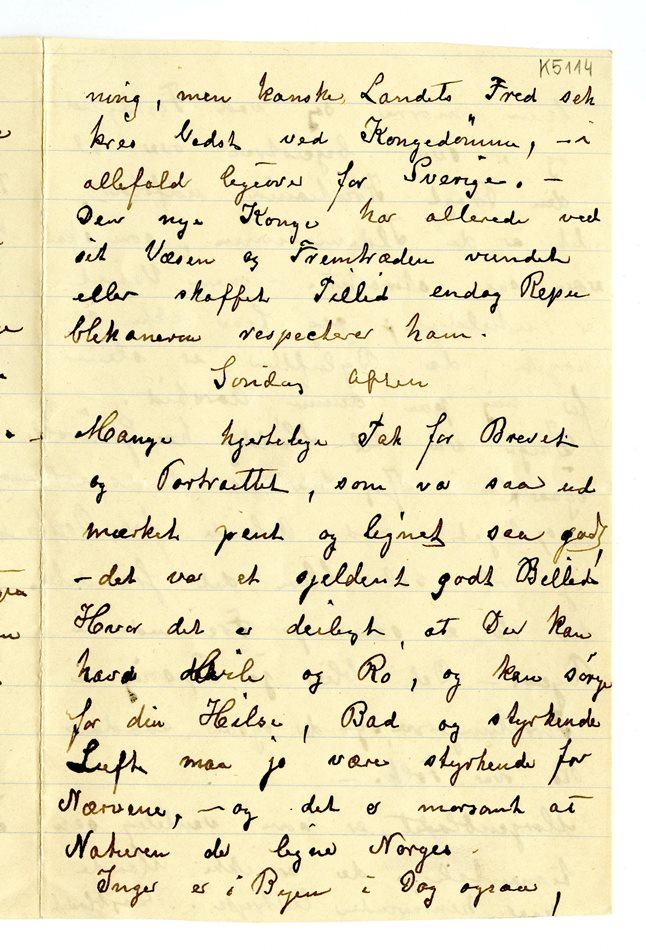 K5114
ning, men kanske Landets Fred sek
kres bedst ved Kongedömme, – i
allefald ligeover for Sverige. –
Den nye Konge har allerede ved
sit Væsen og Fremtræden vundet
eller skaffet Tillid endog Repu
blikanerne respecterer ham.
Söndag Aften
Mange hjertelige Tak for Brevet
og Portrættet, som var saa ud
mærket pent og lignet saa godt,
– det var et sjeldent godt Billede
Hvor det er deiligt, at Du kan
have Hvile og Ro, og kan sörge
for din Helse, Bad og styrkende
Luft maa jo være styrkende for
Nærvene, – og det er morsomt at
Naturen der ligne Norges.
Inger er i Byen i Dag ogsaa,